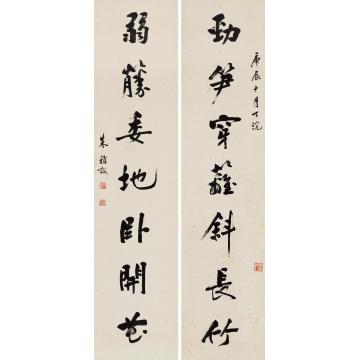 勁笋穿籬斜長竹
庚辰十月下浣
弱藤委地卧開花